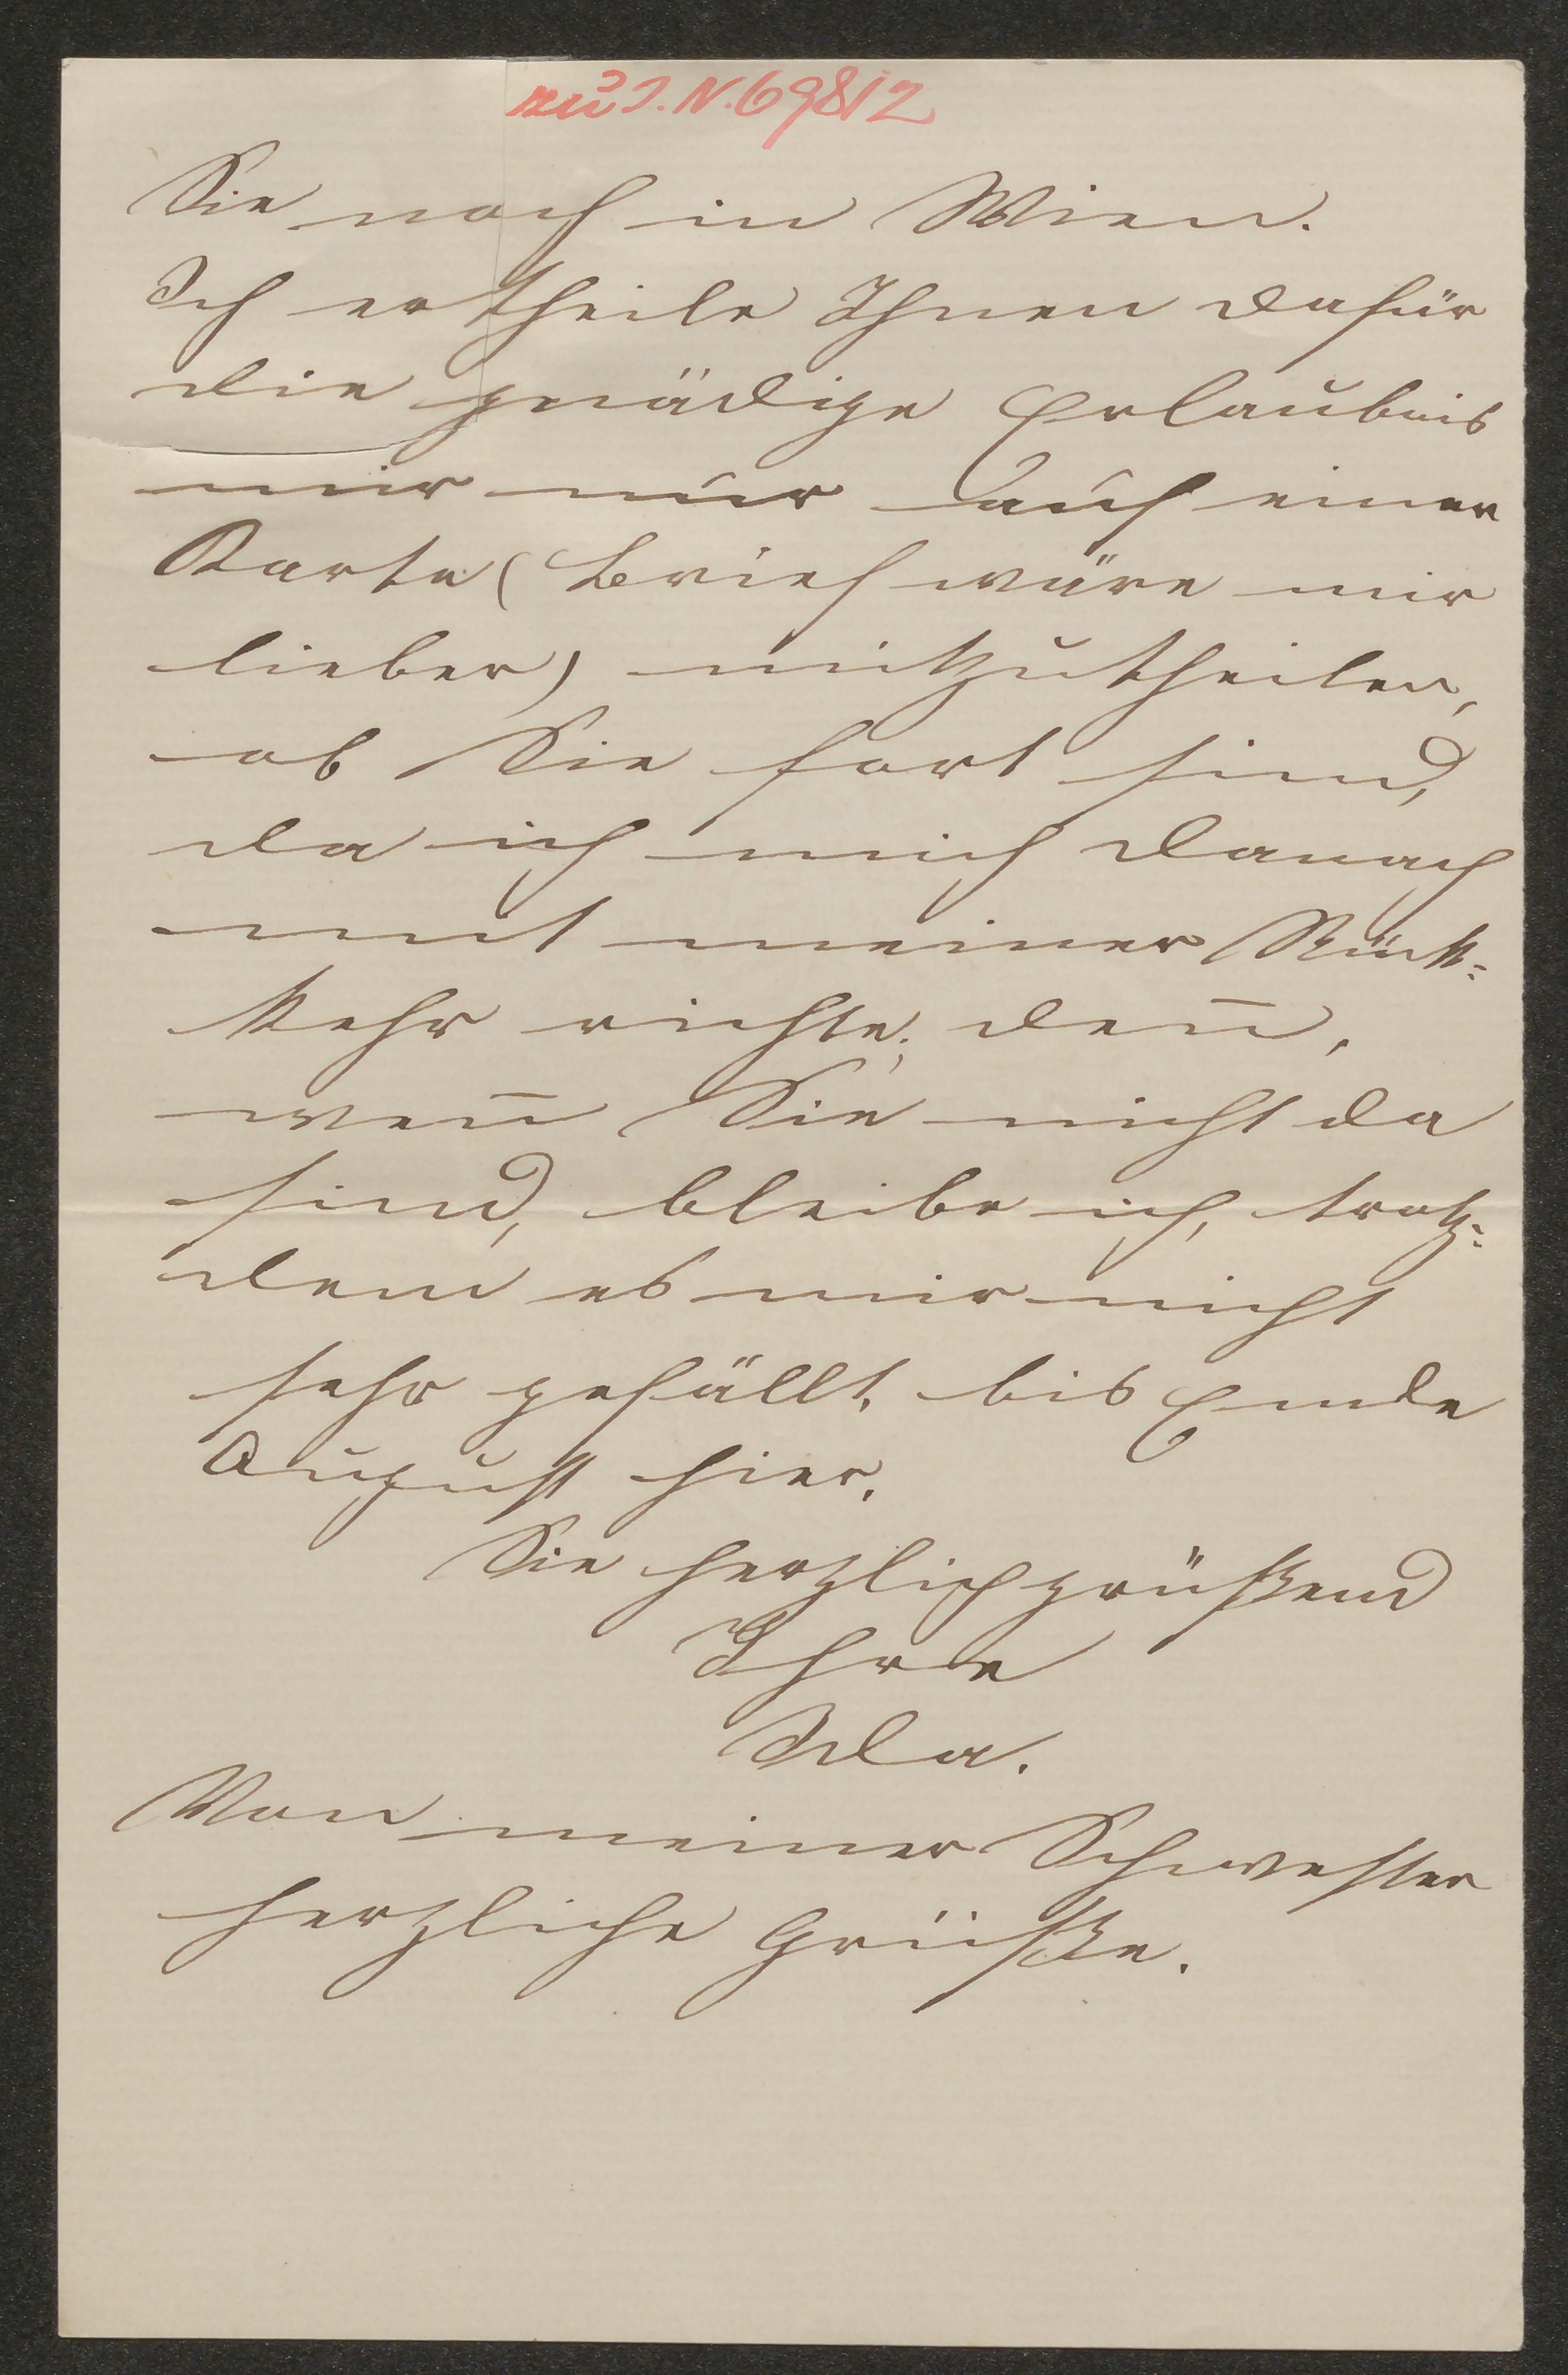 zu I.N. 69812
Sie noch in Wien.
Ich ertheile Ihnen dafür
die gnädige Erlaubnis
mir nur auf einer
Karte (Brief wäre mir
lieber) mitzutheilen,
ob Sie fort sind,
da ich mich danach
mit meiner Rück-
kehr richte; den̄,
wen̄ Sie nicht da
sind, bleibe ich, trotz-
dem es mir nicht
sehr gefällt, bis Ende
August hier.
Sie herzlich grüßend
Ihre
Ida.
Von meiner Schwester
herzliche Grüße.